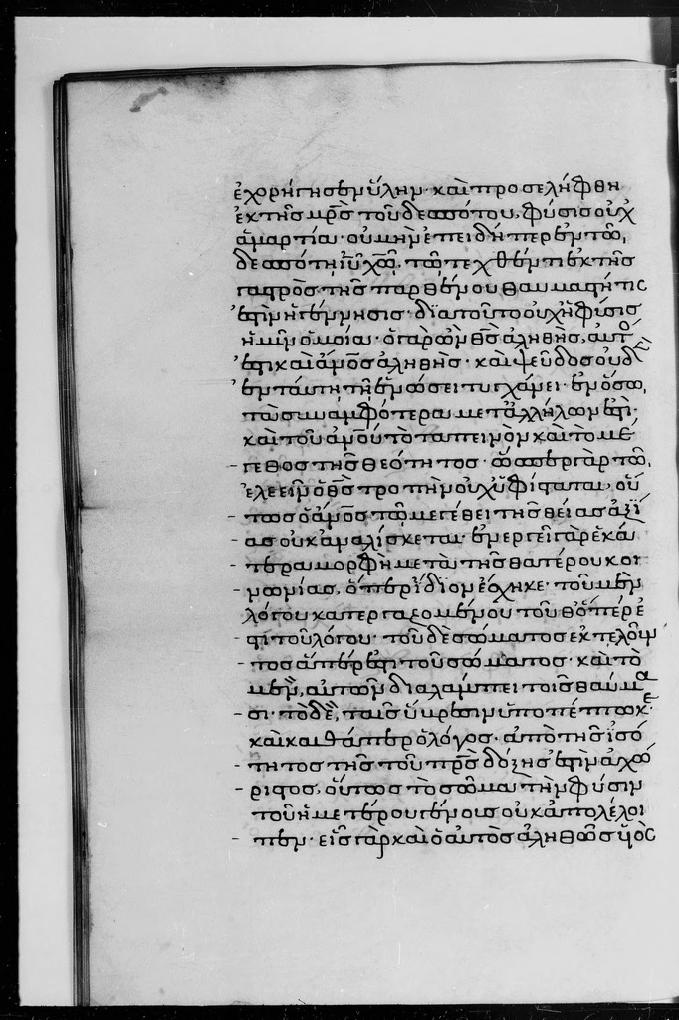 ἐχορήγησεν ὕλην· καὶ προσελήφθη
ἐκ τῆς μρ̅ς τοῦ δεσπότου, φύσις οὐχ
ἁμαρτία· οὐ μὴν ἐπειδήπερ ἐν τῶ
δεσπότη ἰυ̅ χω̅, τῶ τεχθέντι ἐκ τῆς
γαστρὸς τῆς παρθένου θαυμαστή τις
ἐστὶν ἡ γέννησις· διατοῦτο οὐχ ἡ φύσις
ἡμῖν ὁμοία· ὁ γὰρ ὢν θς̅ ἀληθὴς, αὐτό
ἐστι καὶ ἄνο̅ς ἀληθής· καὶ ψεῦδος οὐδὲ
ἐν ταύτη τῆ ἑνώσει τυγχάνει· ἐν ὅσω,
τὰ συναμφότερα μετ ἀλλήλων ἐστὶ·
καὶ τοῦ ἀνο̅υ τὸ ταπεινὸν καὶ τὸ μέ
γεθος τῆς θεότητος· ὥσπερ γὰρ τῶ
ἐλεεῖν ὁ θς̅ τροπὴν οὐχ ὑφίσταται, οὕ
τως ὁ ἄνο̅ς τῶ μεγέθει τῆς θείας ἀξί
ας οὐκ ἀναλίσκεται· ἐνεργεῖ γὰρ ἑκα
τέρα μορφὴ μετὰ τῆς θατέρου κοι
νωνίας, ὅπερ ἴδιον ἔσχηκε· τοῦ μὲν
λόγου κατεργαζομένου τοῦθ ὅπερ ἐ
στὶ τοῦ λόγου· τοῦ δὲ σώματος ἐκτελοῦν
τος ἅπερ ἐστὶ τοῦ σώματος· καὶ τὸ
μὲν, αὐτῶν διαλάμπει τοῖς θαύμα
σι· τὸ δὲ, ταῖς ὕβρεσιν ὑποπέπτωκε·
καὶ καθάπερ ὁ λόγος· ἀπὸ τῆς ἰσό
τητος τῆς τοῦ πρ̅ς δόξης ἐστὶν ἀχώ
ριστος, οὕτως τὸ σῶμα τὴν φύσιν
τοῦ ἡμετέρου γένους οὐκ ἀπολέλοι
πεν· εἷς γὰρ καὶ ὁ αὐτὸς ἀληθῶς υἱὸς